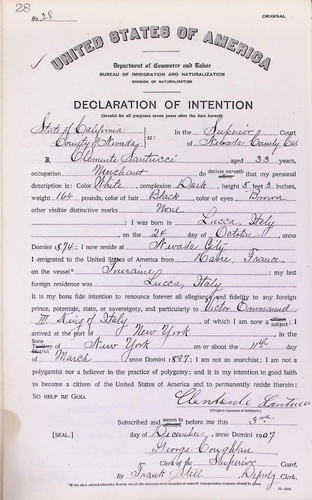 28
No. 28
ORIGINAL
UNITED STATES OF AMERICA
Department of Commerce and Labor
BUREAU OF IMMIGRATION AND NATURALIZATION
DIVISION OF NATURALIZATION
DECLARATION OF INTENTION
(Invalid for all purposes seven years after the date hereof)
State of California
County of Nevada ss: In the Superior Court
of Nevada County Cal
I, Clemente Santucci, aged 33 years,
occupation Merchant, do declare on oath that my personal
description is: Color White, complexion Dark, height 5 feet 3 inches,
weight 164 pounds, color of hair Black, color of eyes Brown
other visible distinctive marks None
I was born in Lucca, Italy
on the 24 day of October, anno
Domini 1874; I now reside at Nevada City
I emigrated to the United States of America from Havre, France
on the vessel Touraine; my last
foreign residence was Lucca, Italy
It is my bona fide intention to renounce forever all allegiance and fidelity to any foreign
prince, potentate, state, or sovereignty, and particularly to Victor Emmanuel
III King of Italy, of which I am now a citizen subject; I
arrived at the port of New York, in the
State Territory District of New York on or about the 11th day
of March, anno Domini 1897; I am not an anarchist; I am not a
polygamist nor a believer in the practice of polygamy; and it is my intention in good faith
to become a citizen of the United States of America and to permanently reside therein:
SO HELP ME GOD.
Clemente Santucci
(Original signature of declarant.)
Subscribed and sworn to before me this 3rd
[SEAL.] day of December, anno Domini 1907
George Coughlan
Clerk of the Superior Court.
By Frank Hill Deputy Clerk.